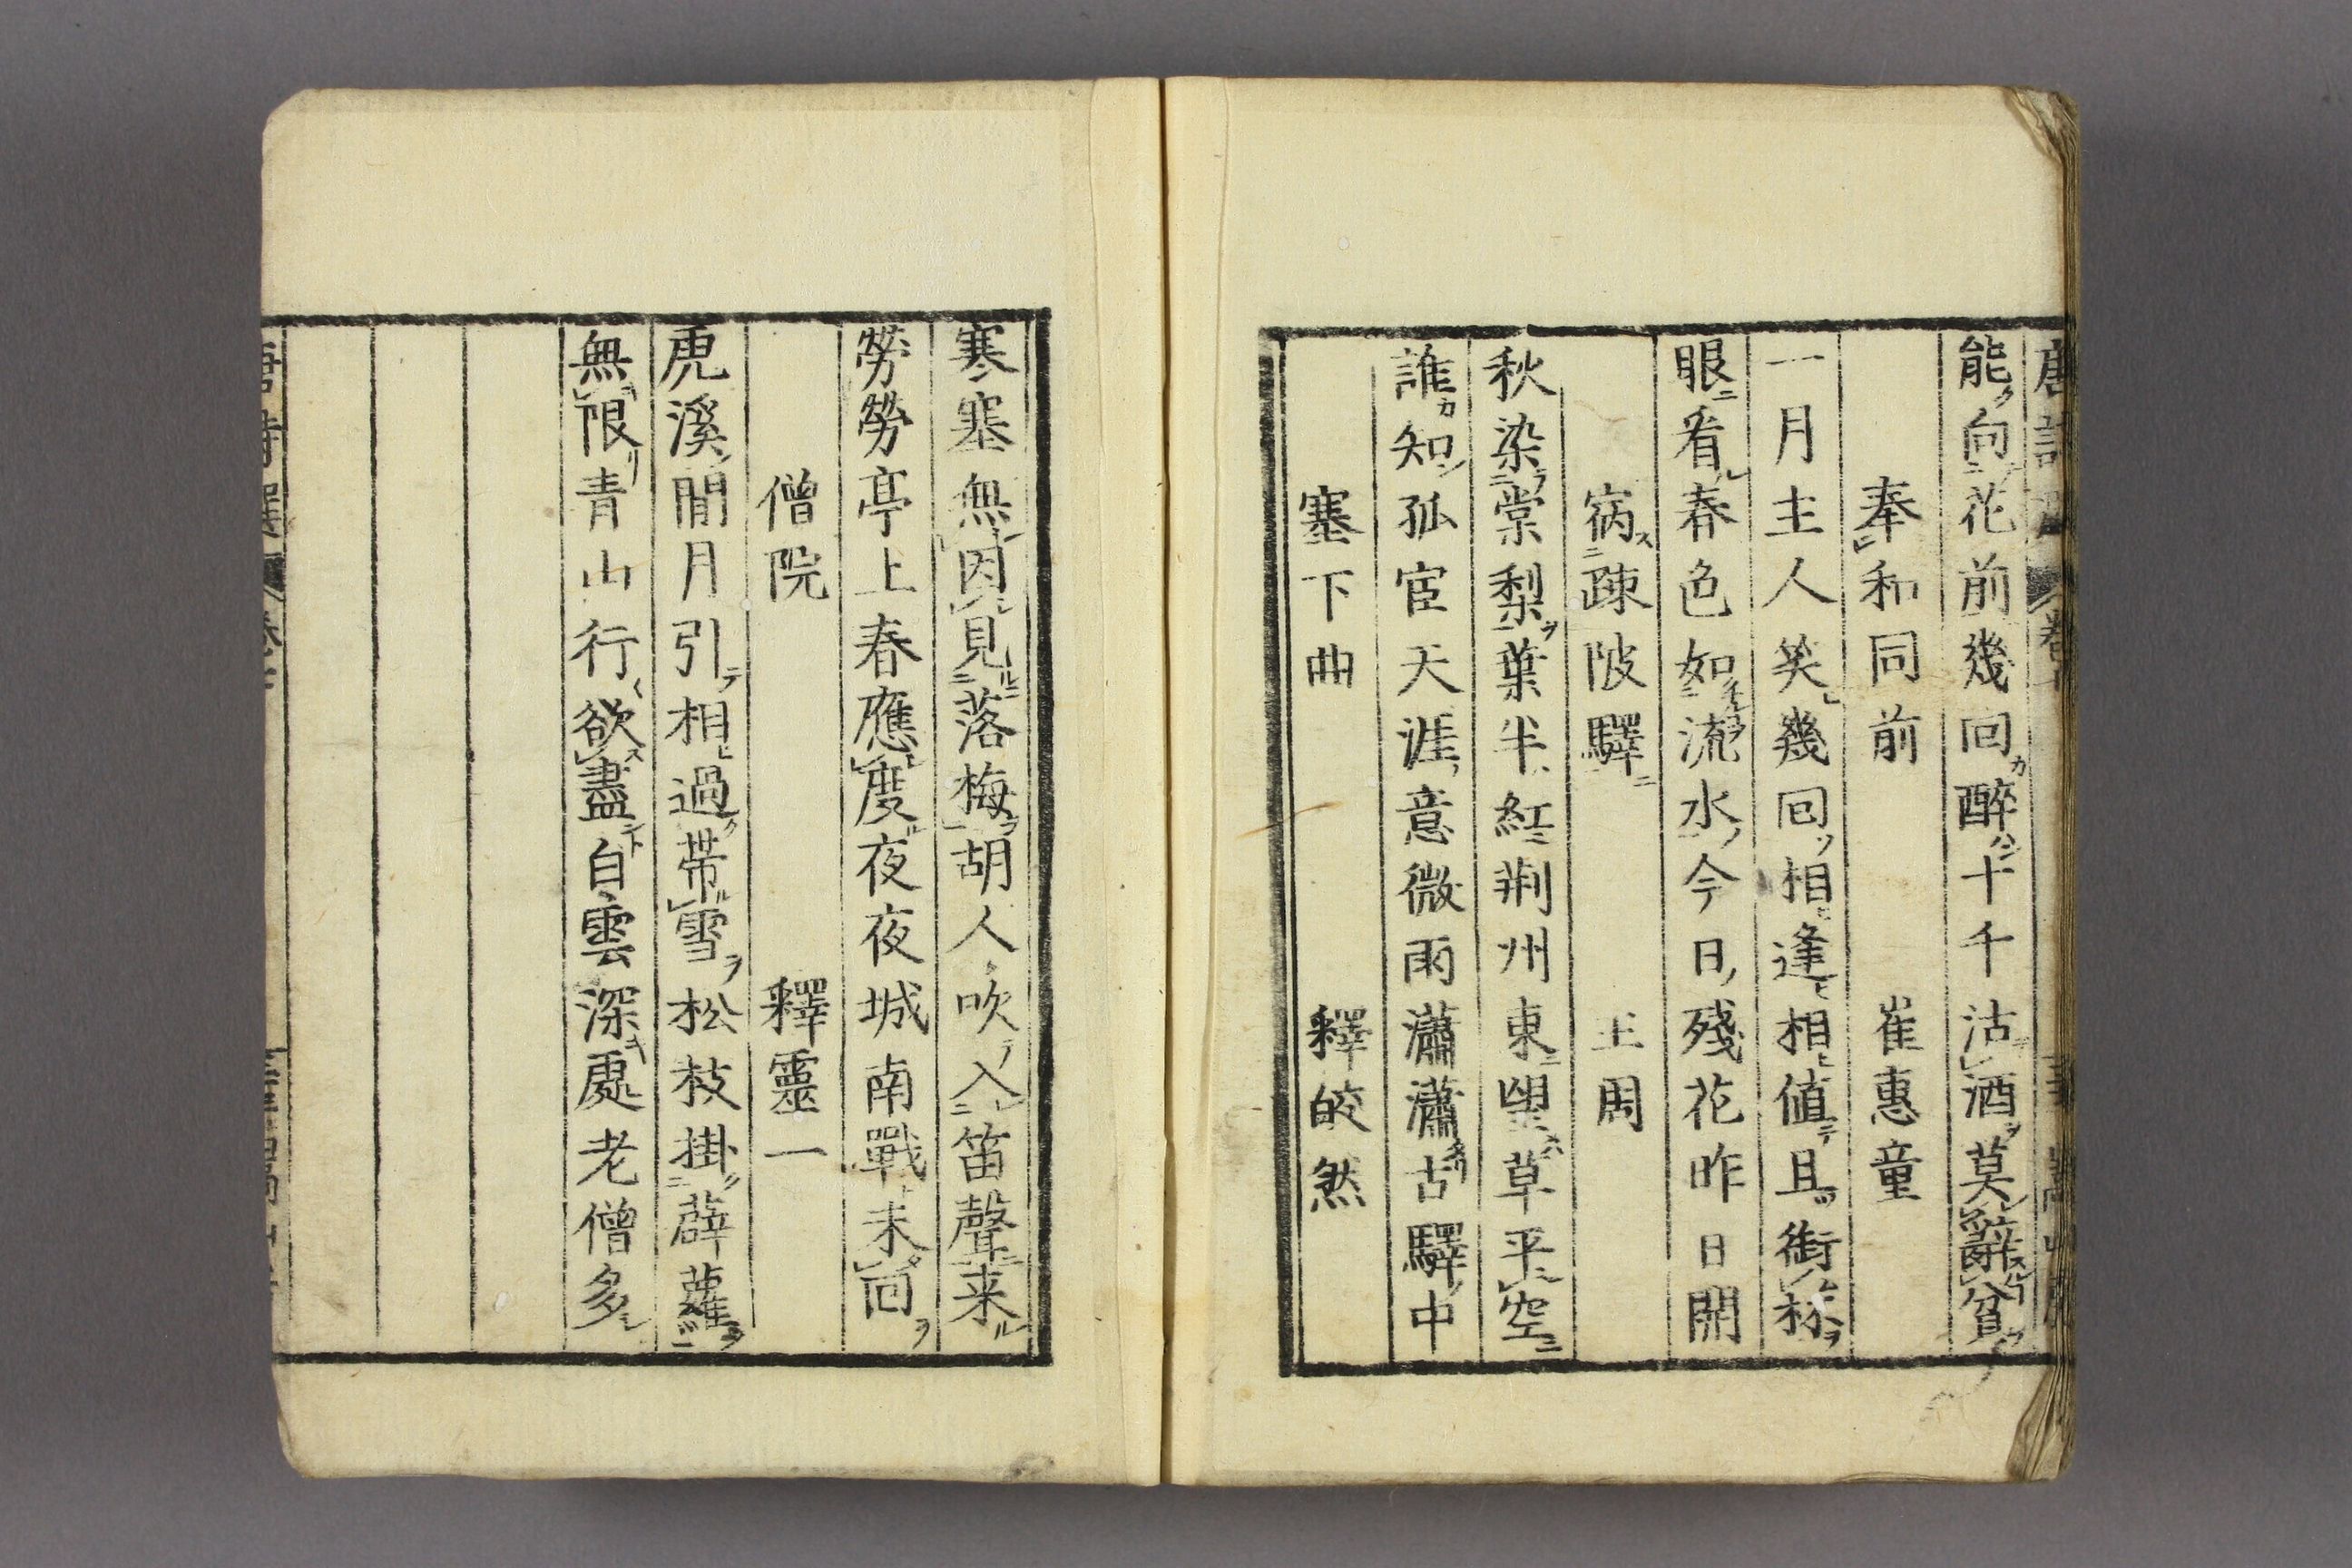 能向花前幾回醉十千沽酒莫辭貧
奉和同前 崔惠童
一月主人笑幾回相逢相值且銜杯
眼看春色如流水今日殘花昨日開
宿疎陂驛 王周
秋染棠梨葉半紅荆州東望草平空
誰知孤宦天涯意微雨瀟瀟古驛中
塞下曲 釋皎然
寒塞無因見落梅胡人吹入笛聲来
勞勞亭上春應度夜夜城南戰未回
僧院 釋靈一
虎溪閒月引相過帶雪松枝掛薜蘿
無限青山行欲盡白雲深處老僧多
唐詩選 卷七